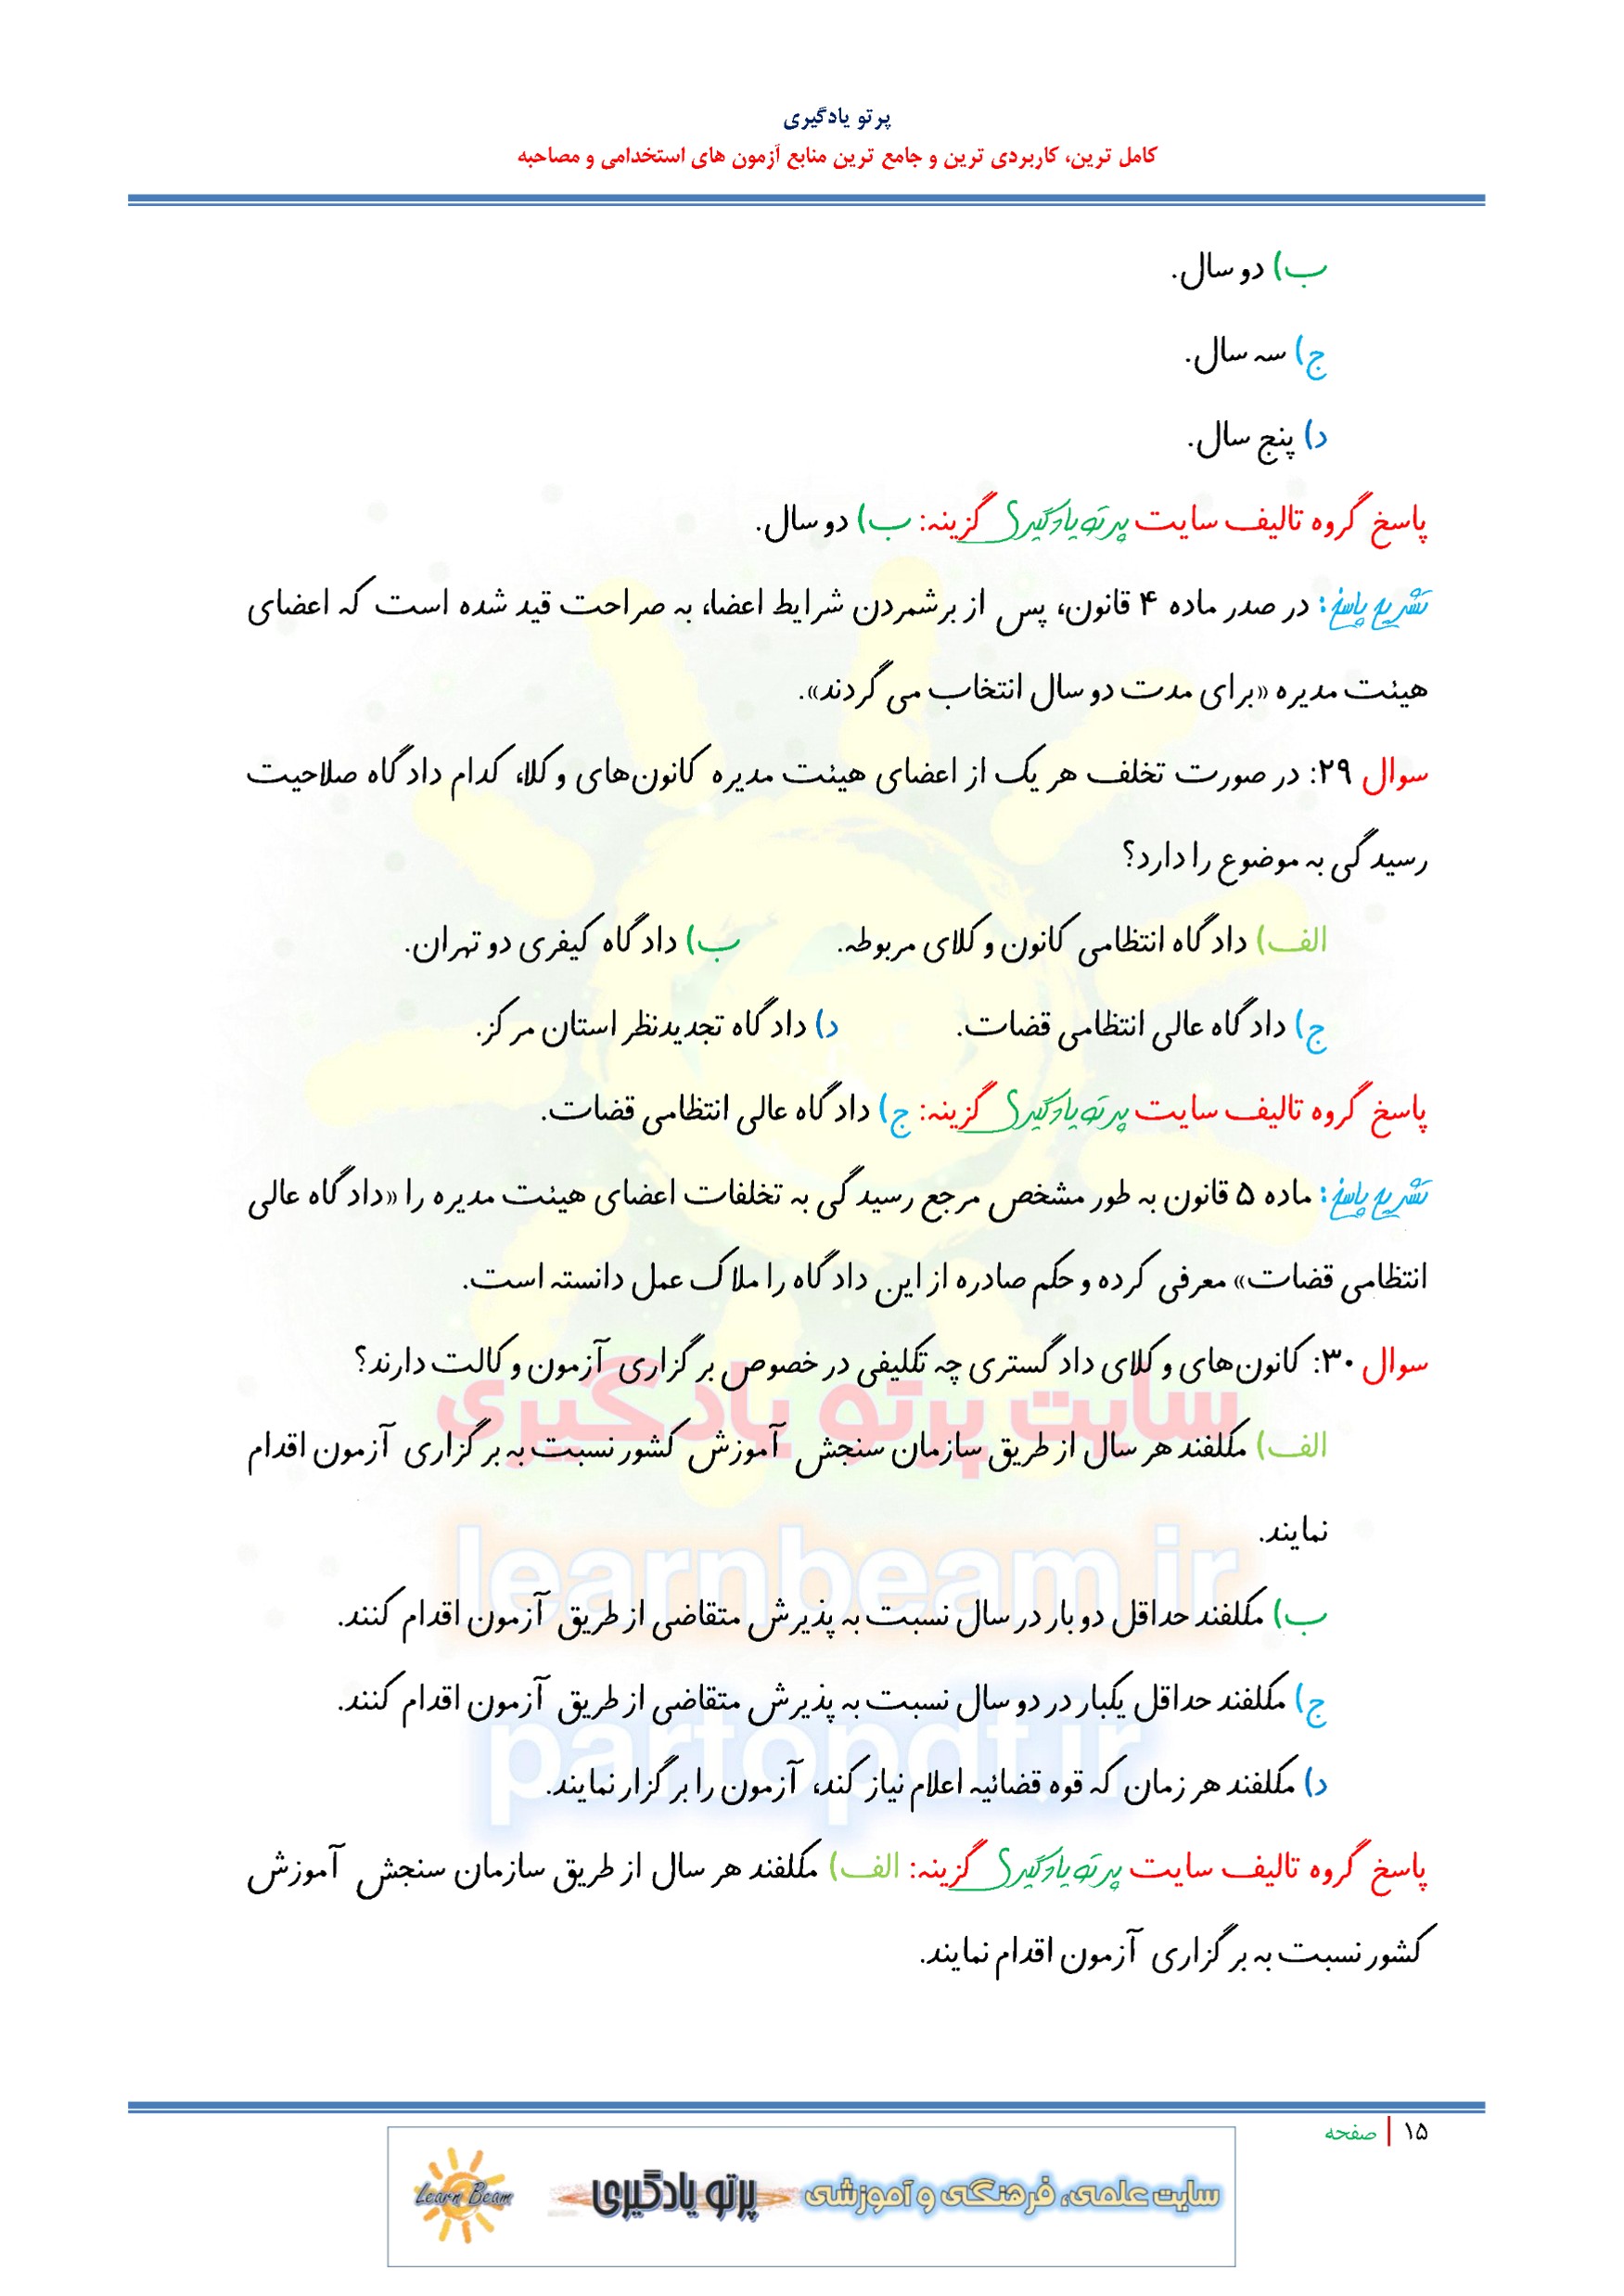 پرتو یادگیری
کامل ترین، کاربردی ترین و جامع ترین منابع آزمون های استخدامی و مصاحبه
ب) دو سال.
ج) سه سال.
د) پنج سال.
پاسخ گروه تالیف سایت پرتو یادگیری گزینه: ب) دو سال.
تشریح پاسخ: در صدر ماده ۴ قانون، پس از برشمردن شرایط اعضا، به صراحت قید شده است که اعضای
هیئت مدیره «برای مدت دو سال انتخاب می گردند».
سوال ۲۹: در صورت تخلف هر یک از اعضای هیئت مدیره کانون‌های وکلا، کدام دادگاه صلاحیت
رسیدگی به موضوع را دارد؟
الف) دادگاه انتظامی کانون وکلای مربوطه. ب) دادگاه کیفری دو تهران.
ج) دادگاه عالی انتظامی قضات. د) دادگاه تجدیدنظر استان مرکز.
پاسخ گروه تالیف سایت پرتو یادگیری گزینه: ج) دادگاه عالی انتظامی قضات.
تشریح پاسخ: ماده ۵ قانون به طور مشخص مرجع رسیدگی به تخلفات اعضای هیئت مدیره را «دادگاه عالی
انتظامی قضات» معرفی کرده و حکم صادره از این دادگاه را ملاک عمل دانسته است.
سوال ۳۰: کانون‌های وکلای دادگستری چه تکلیفی در خصوص برگزاری آزمون وکالت دارند؟
سایت پرتو یادگیری
الف) مکلفند هر سال از طریق سازمان سنجش آموزش کشور نسبت به برگزاری آزمون اقدام
نمایند.
learnbeam.ir
ب) مکلفند حداقل دو بار در سال نسبت به پذیرش متقاضی از طریق آزمون اقدام کنند.
ج) مکلفند حداقل یکبار در دو سال نسبت به پذیرش متقاضی از طریق آزمون اقدام کنند.
partopdf.ir
د) مکلفند هر زمان که قوه قضائیه اعلام نیاز کند، آزمون را برگزار نمایند.
پاسخ گروه تالیف سایت پرتو یادگیری گزینه: الف) مکلفند هر سال از طریق سازمان سنجش آموزش
کشور نسبت به برگزاری آزمون اقدام نمایند.
۱۵ | صفحه
سایت علمی، فرهنگی و آموزشی پرتو یادگیری Learn Beam